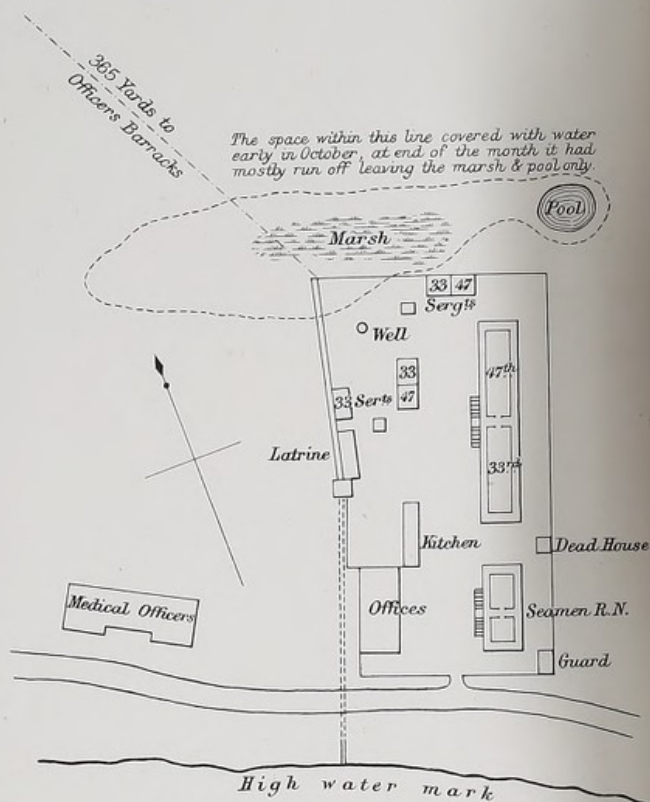 365 Yards to
Officers Barracks
The space within this line covered with water
early in October, at end of the month it had
mostly run off leaving the marsh & pool only.
Pool
Marsh
33 47
Sergts
Well
33
47
47th
33 Serts
Latrine
33rd
Kitchen
Dead House
Medical Officers
Offices
Seamen R.N.
Guard
High water mark